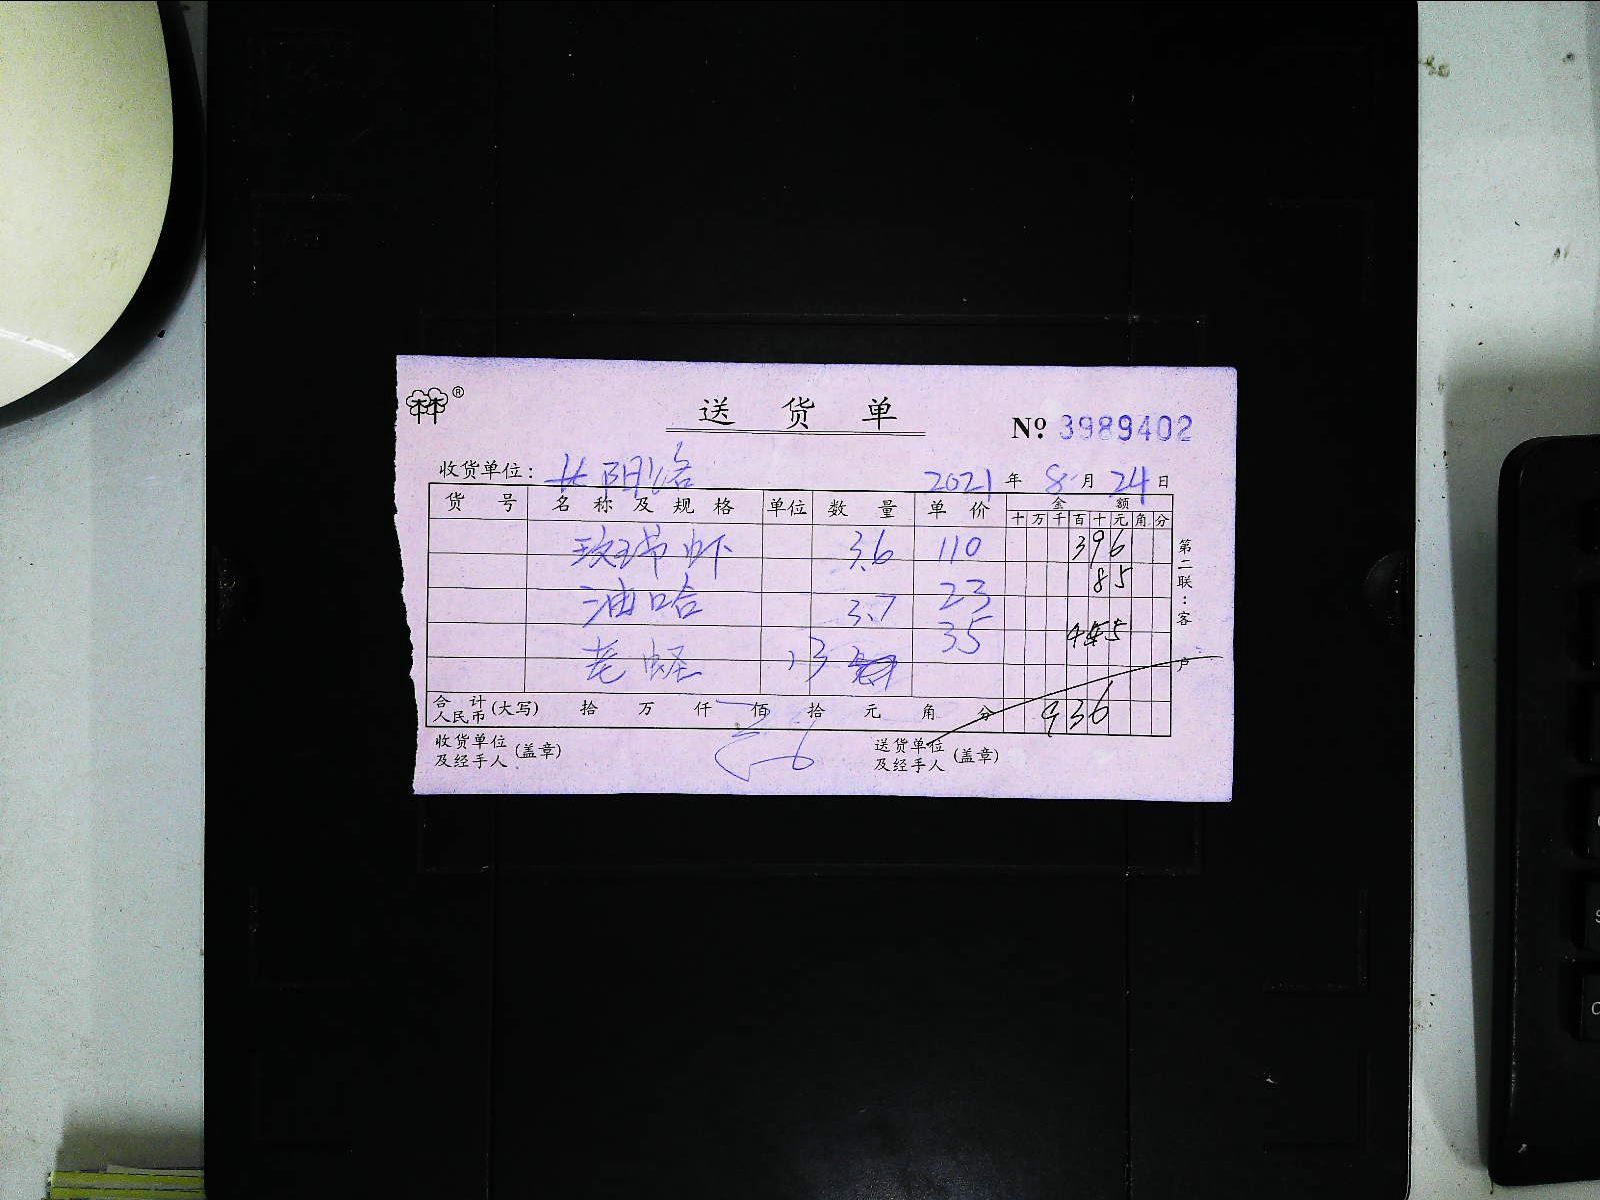 林®
送货单
№ 3989402
收货单位: 2021年8月24日
货号 名称及规格 单位 数量 单价 金额
十万千百十元角分
玫瑰虾 3.6 110 396
油哈 3.7 23 85
老蛏 13 35 455
合计人民币(大写) 拾 万 仟 佰 拾 元 角 分 936
收货单位及经手人(盖章) 送货单位及经手人(盖章)
第二联:客户